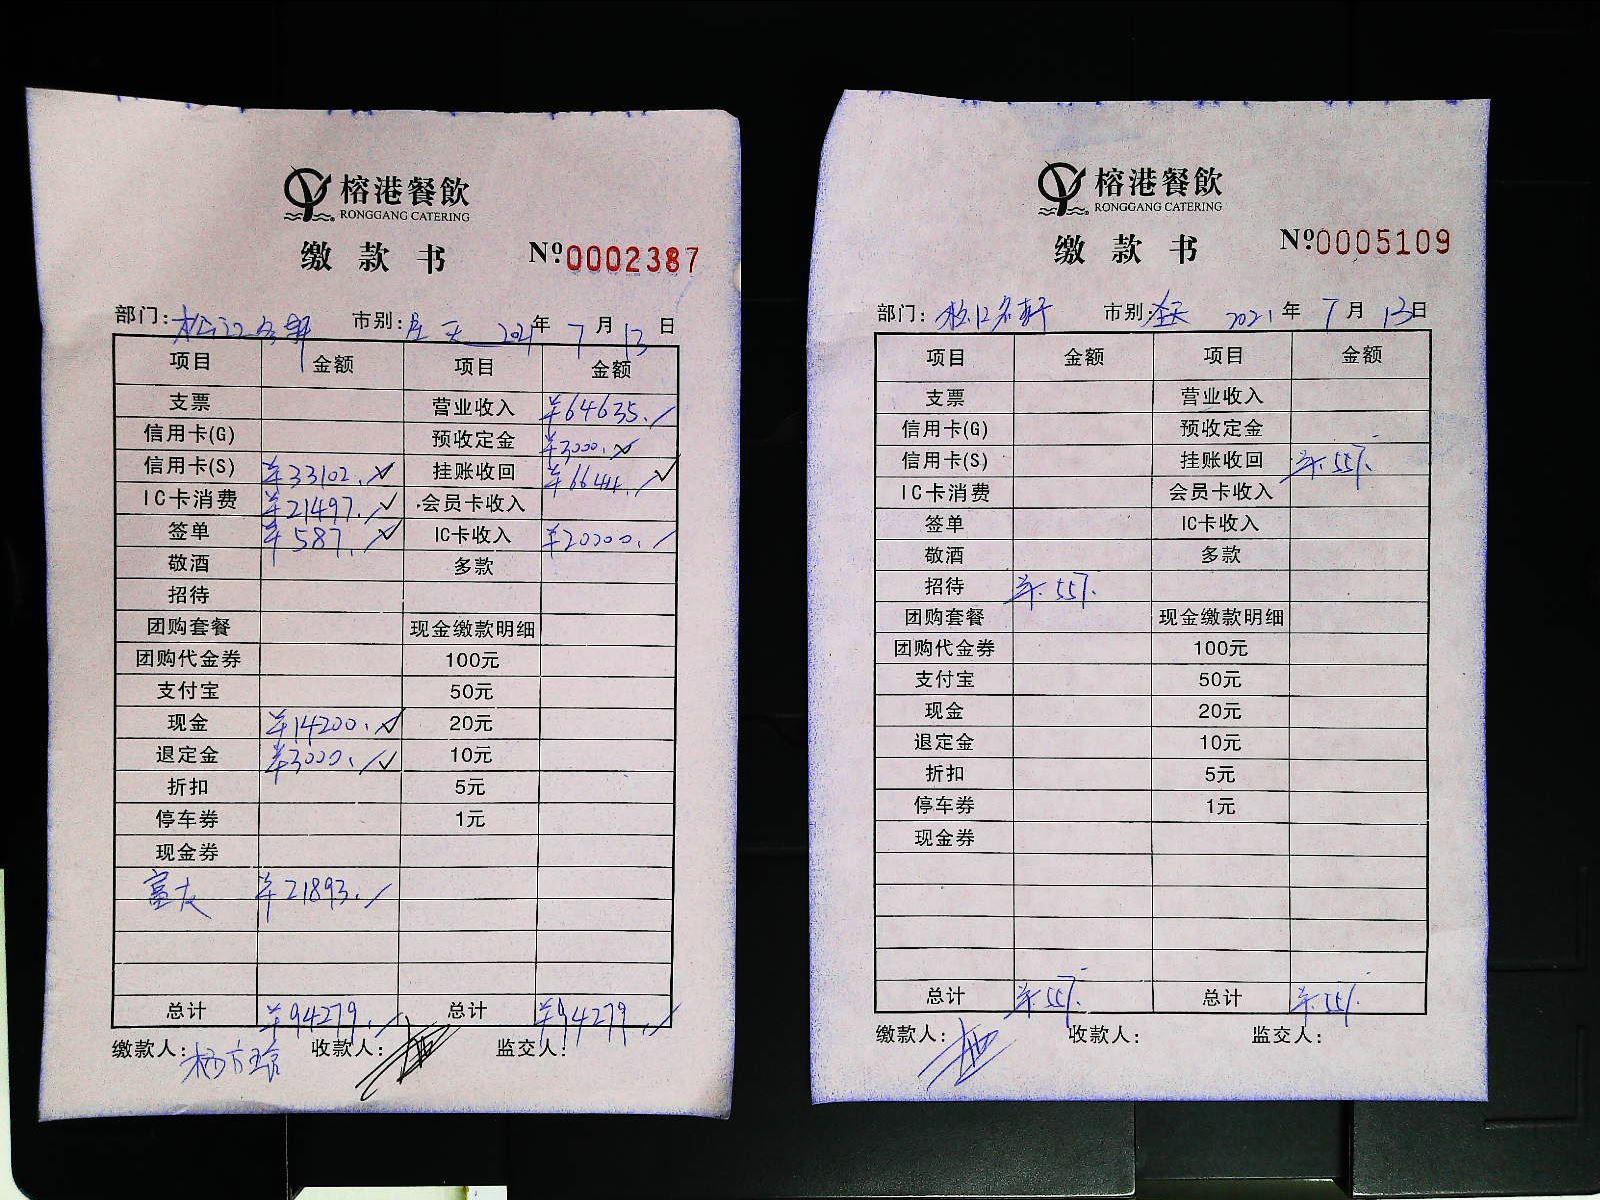 榕港餐飲
RONGGANG CATERING
缴款书 №0002387
部门: 松江名轩 市别: 全天 2021年7月13日
项目 金额 项目 金额
支票 营业收入 ¥64635.
信用卡(G) 预收定金 ¥3000.
信用卡(S) ¥33102. 挂账收回 ¥6644.
IC卡消费 ¥21497. 会员卡收入
签单 ¥587. IC卡收入 ¥20000.
敬酒 多款
招待
团购套餐 现金缴款明细
团购代金券 100元
支付宝 50元
现金 ¥14200. 20元
退定金 ¥3000. 10元
折扣 5元
停车券 1元
现金券
富友 ¥21893.
总计 ¥94279. 总计 ¥94279.
缴款人: 收款人: 监交人:
榕港餐飲
RONGGANG CATERING
缴款书 №0005109
部门: 松江名轩 市别: 全天 2021年7月13日
项目 金额 项目 金额
支票 营业收入
信用卡(G) 预收定金
信用卡(S) 挂账收回 ¥557.
IC卡消费 会员卡收入
签单 IC卡收入
敬酒 多款
招待 ¥557.
团购套餐 现金缴款明细
团购代金券 100元
支付宝 50元
现金 20元
退定金 10元
折扣 5元
停车券 1元
现金券
总计 ¥557. 总计 ¥557.
缴款人: 收款人: 监交人: